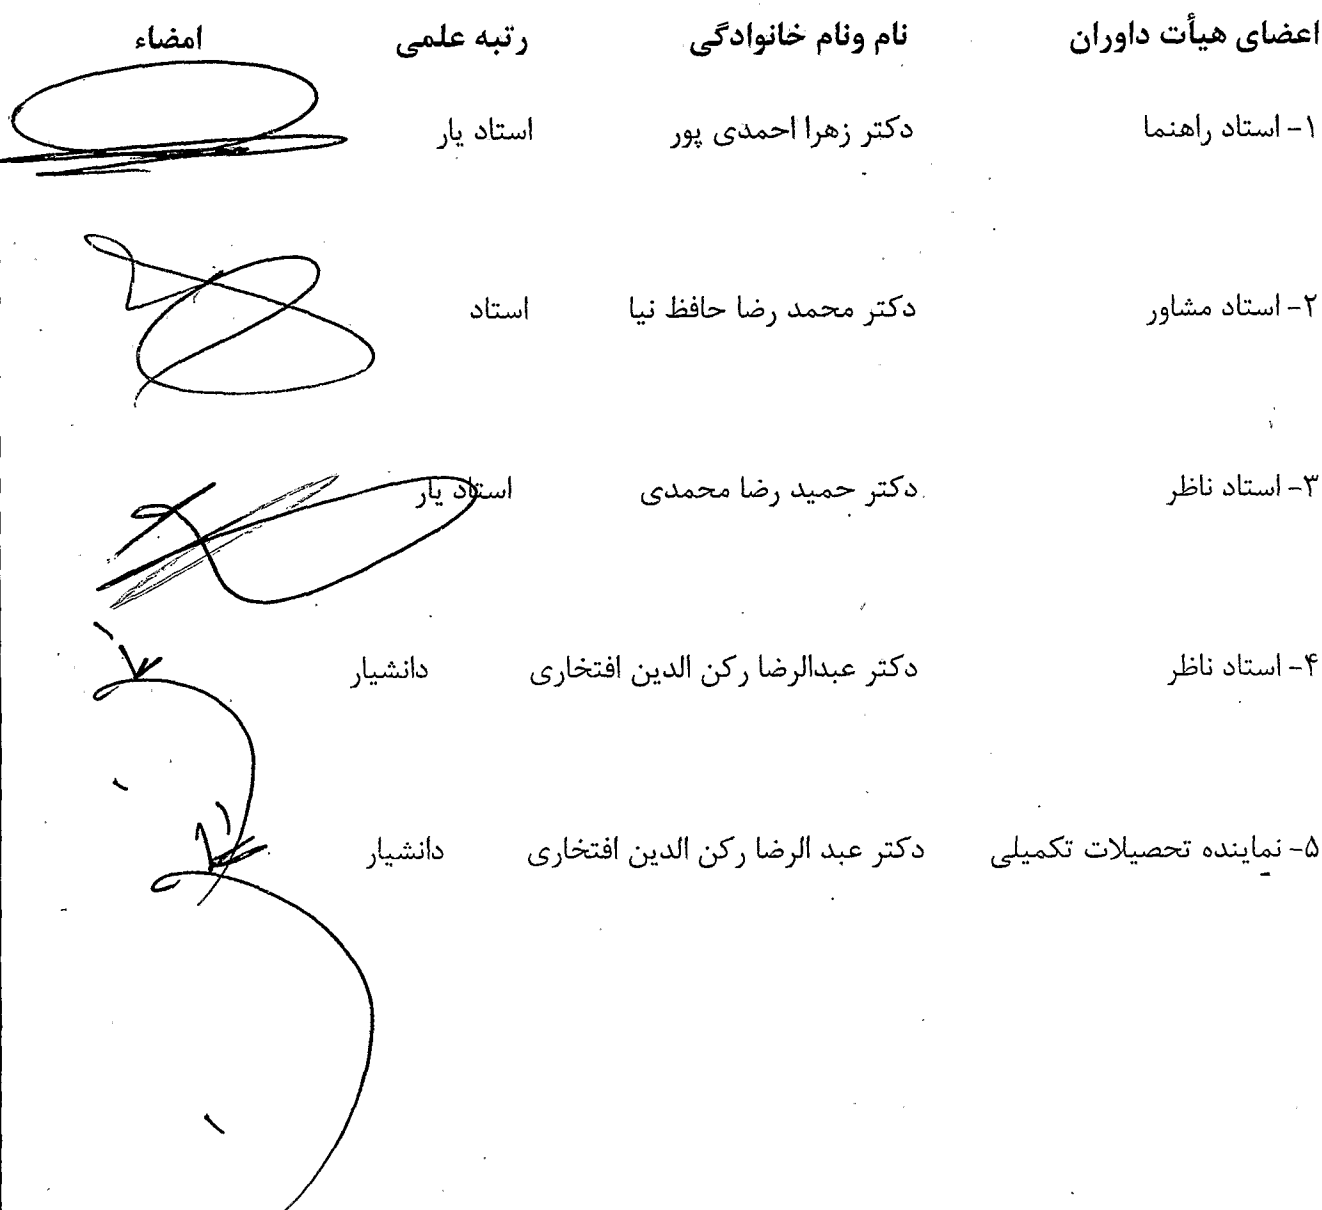 اعضای هیأت داوران نام ونام خانوادگی رتبه علمی امضاء
۱- استاد راهنما دکتر زهرا احمدی پور استاد یار
۲- استاد مشاور دکتر محمد رضا حافظ نیا استاد
۳- استاد ناظر دکتر حمید رضا محمدی استاد یار
۴- استاد ناظر دکتر عبدالرضا رکن الدین افتخاری دانشیار
۵- نماینده تحصیلات تکمیلی دکتر عبد الرضا رکن الدین افتخاری دانشیار